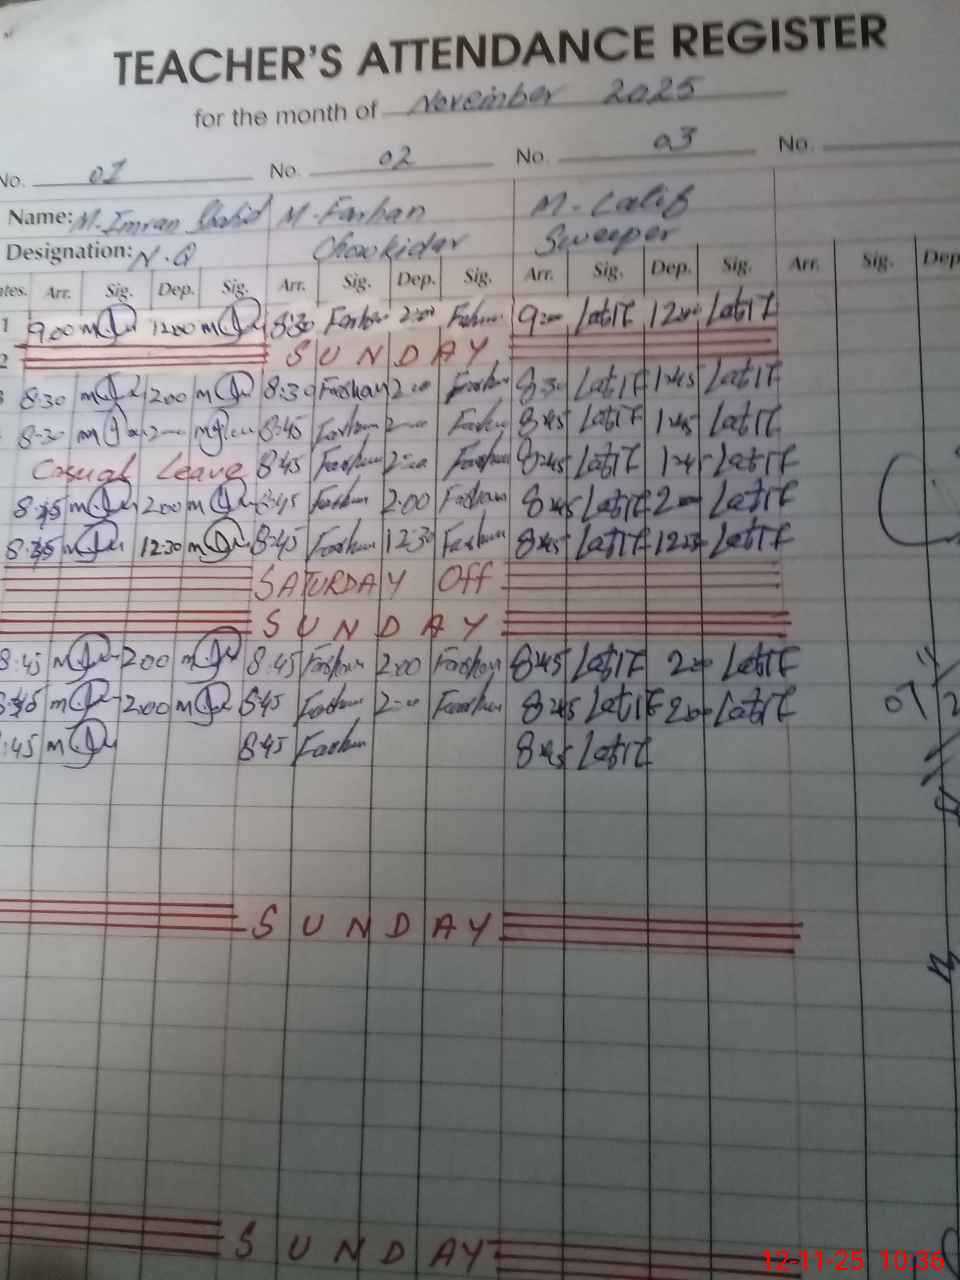 TEACHER'S ATTENDANCE REGISTER
for the month of November 2025
No. 01 No. 02 No. 03 No.
Name: M. Imran Shahid M. Farhan M. Latif
Designation: N.Q Chowkidar Sweeper
Arr. Sig. Dep. Sig. Arr. Sig. Dep. Sig. Arr. Sig. Dep. Sig. Arr. Sig. Dep
1 9.00 12.00 8:30 Farhan 2:00 Farhan 9:00 LatIF 12:00 LatIF
2 SUNDAY
8:30 2:00 8:30 Farhan 2:00 Farhan 8:30 LatIF 1:45 LatIF
8:30 2:00 8:45 Farhan 2:00 Farhan 8:45 LatIF 1:45 LatIF
Casual Leave 8:45 Farhan 2:00 Farhan 8:45 LatIF 1:45 LatIF
2:00 8:45 Farhan 2:00 Farhan 8:45 LatIF 2:00 LatIF
12:30 8:45 Farhan 12:30 Farhan 8:45 LatIF 12:30 LatIF
SATURDAY Off
SUNDAY
8:45 2:00 8:45 Farhan 2:00 Farhan 8:45 LatIF 2:00 LatIF
2:00 8:45 Farhan 2:00 Farhan 8:45 LatIF 2:00 LatIF
:45 8:45 Farhan 8:45 LatIF
SUNDAY
SUNDAY
12-11-25 10:36